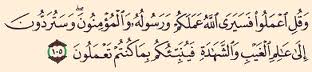 وَقُلِ ٱعۡمَلُواْ فَسَيَرَى ٱللَّهُ عَمَلَكُمۡ وَرَسُولُهُۥ وَٱلۡمُؤۡمِنُونَۖ وَسَتُرَدُّونَ
إِلَىٰ عَٰلِمِ ٱلۡغَيۡبِ وَٱلشَّهَٰدَةِ فَيُنَبِّئُكُم بِمَا كُنتُمۡ تَعۡمَلُونَ ١٠٥